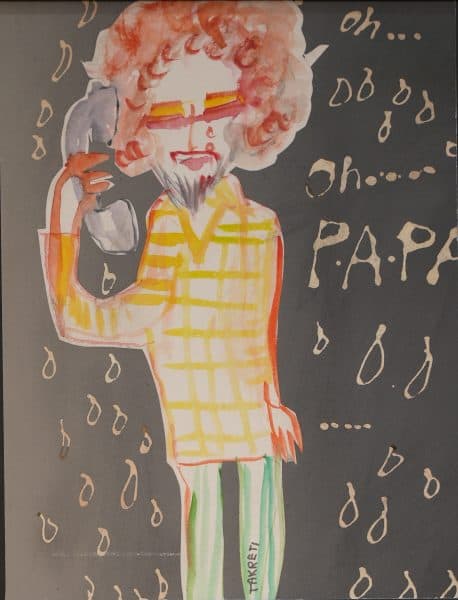 Oh...
Oh......
P.A.PA
.....
TAKRETI